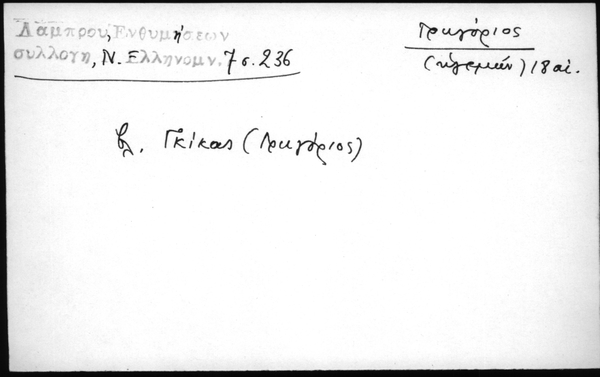 Λάμπρου, Ἐνθυμήσεων
συλλογή, Ν. Ἑλληνομν. 7 σ. 236
Γρηγόριος
(ἡγεμών) 18 αἰ.
βλ. Γκίκας (Γρηγόριος)